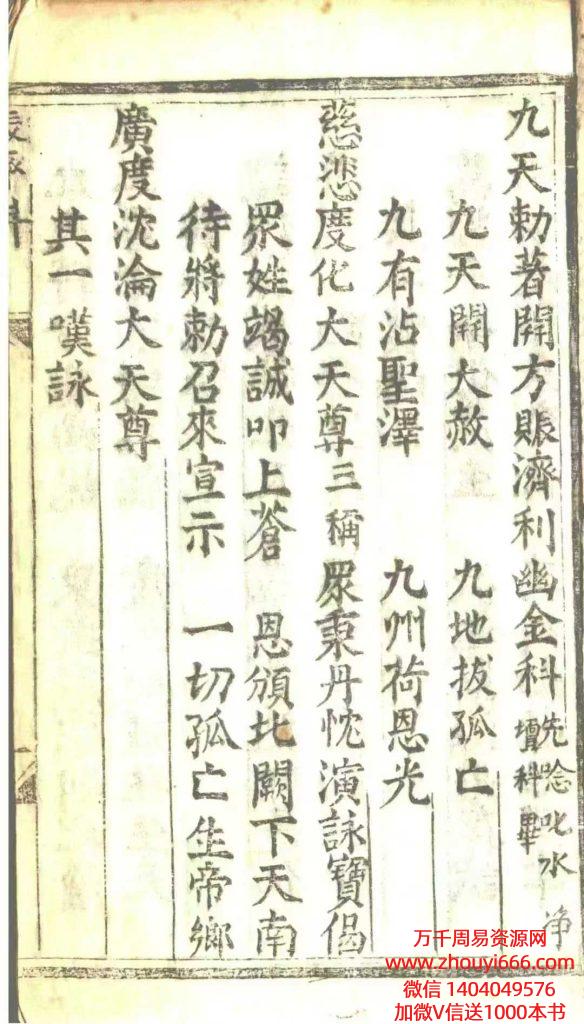 九天勅著開方賑濟利幽金科先唸叱水净壇科畢
九天開大赦 九地拔孤亡
九有沾聖澤 九州荷恩光
慈悲度化大天尊三稱眾秉丹忱演詠寶偈
眾姓竭誠叩上蒼 恩頒北闕下天南
待將勅召來宣示 一切孤亡生帝鄉
廣度沈淪大天尊
其一嘆詠
科
万千周易资源网
www.zhouyi666.com
微信 1404049576
加微V信送1000本书